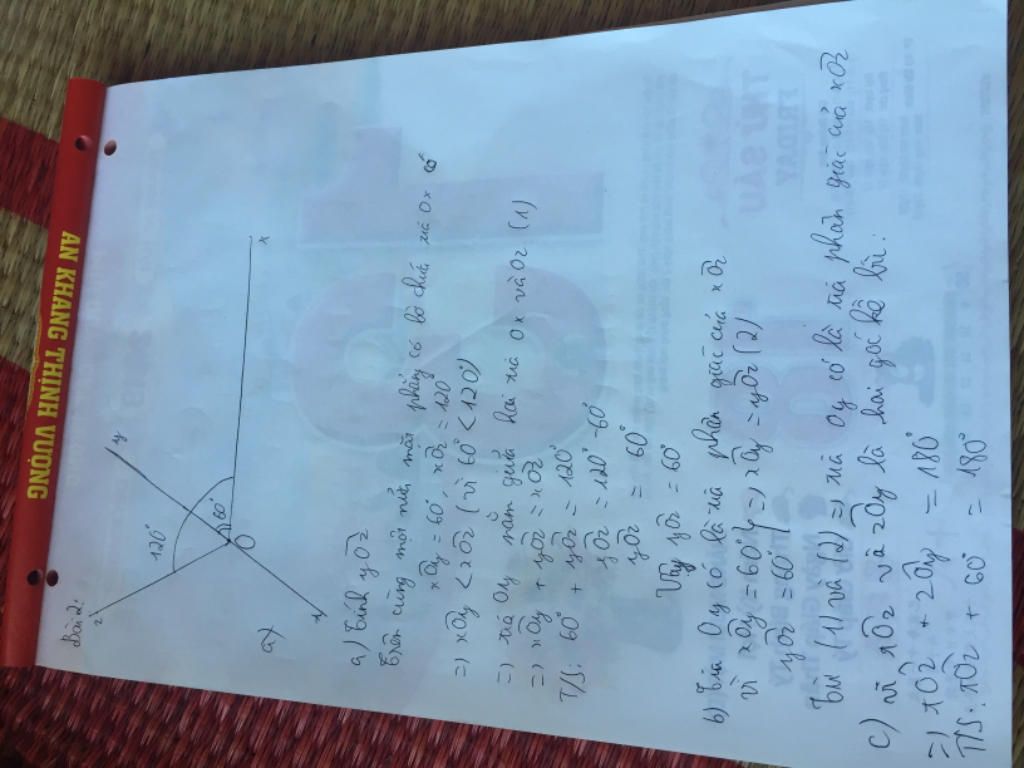 AN KHANG THỊNH VƯỢNG
Bài 2:
z
y
120°
60°
O
x
a)
a) Tính yÔz
Trên cùng một nửa mặt phẳng có bờ chứa tia Ox có
xÔy = 60°, xÔz = 120
=) xÔy < xÔz (vì 60° < 120°)
=) tia Oy nằm giữa hai tia Ox và Oz (1)
=) xÔy + yÔz = xÔz
T/S: 60° + yÔz = 120°
yÔz = 120° - 60°
yÔz = 60°
Vậy yÔz = 60°
b) Tia Oy có là tia phân giác của xÔz
vì xÔy = 60° } =) xÔy = yÔz (2)
yÔz = 60°
Từ (1) và (2) =) tia Oy có là tia phân giác của xÔz
c) vì tÔz và zÔy là hai góc kề bù:
=) tÔz + zÔy = 180°
T/S: tÔz + 60° = 180°
THỨ SÁU
FRIDAY